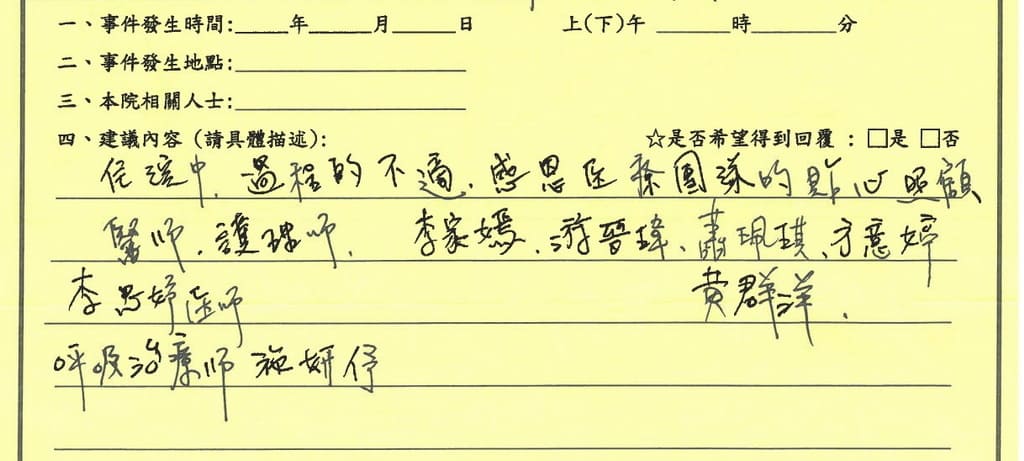 一、事件發生時間:_____年_____月_____日 上(下)午 ______時______分
二、事件發生地點:
三、本院相關人士:
四、建議內容 (請具體描述): ☆是否希望得到回覆 : □是 □否
住院中、過程的不適、感恩医療團隊的貼心照顧
醫師、護理師、 李家嫣、游晉瑋、蕭珮琪、方意婷
李思妤医師 黄群洋、
呼吸治療師 施妍伃